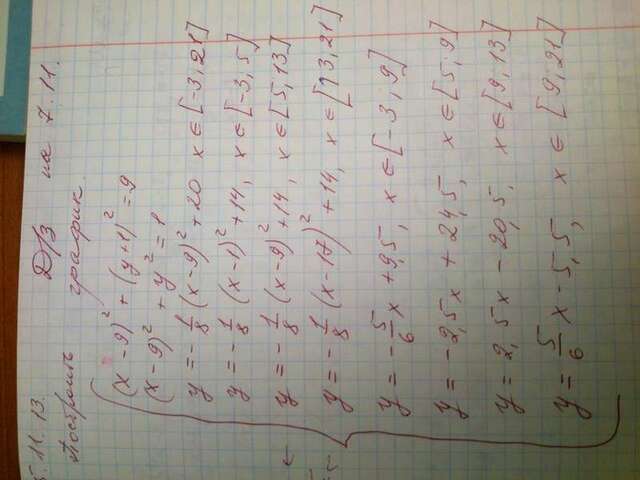 5.11.13. Д/З на 7.11.
Построить график.
(x-9)² + (y+1)² = 9
(x-9)² + y² = 1
y = -1/8 (x-9)² + 20 x ∈ [-3; 21]
y = -1/8 (x-1)² + 14, x ∈ [-3; 5]
y = -1/8 (x-9)² + 14, x ∈ [5; 13]
y = -1/8 (x-17)² + 14, x ∈ [13; 21]
y = -5/6 x + 9,5, x ∈ [-3; 9]
y = -2,5x + 24,5, x ∈ [5; 9]
y = 2,5x - 20,5, x ∈ [9; 13]
y = 5/6 x - 5,5, x ∈ [9; 21]